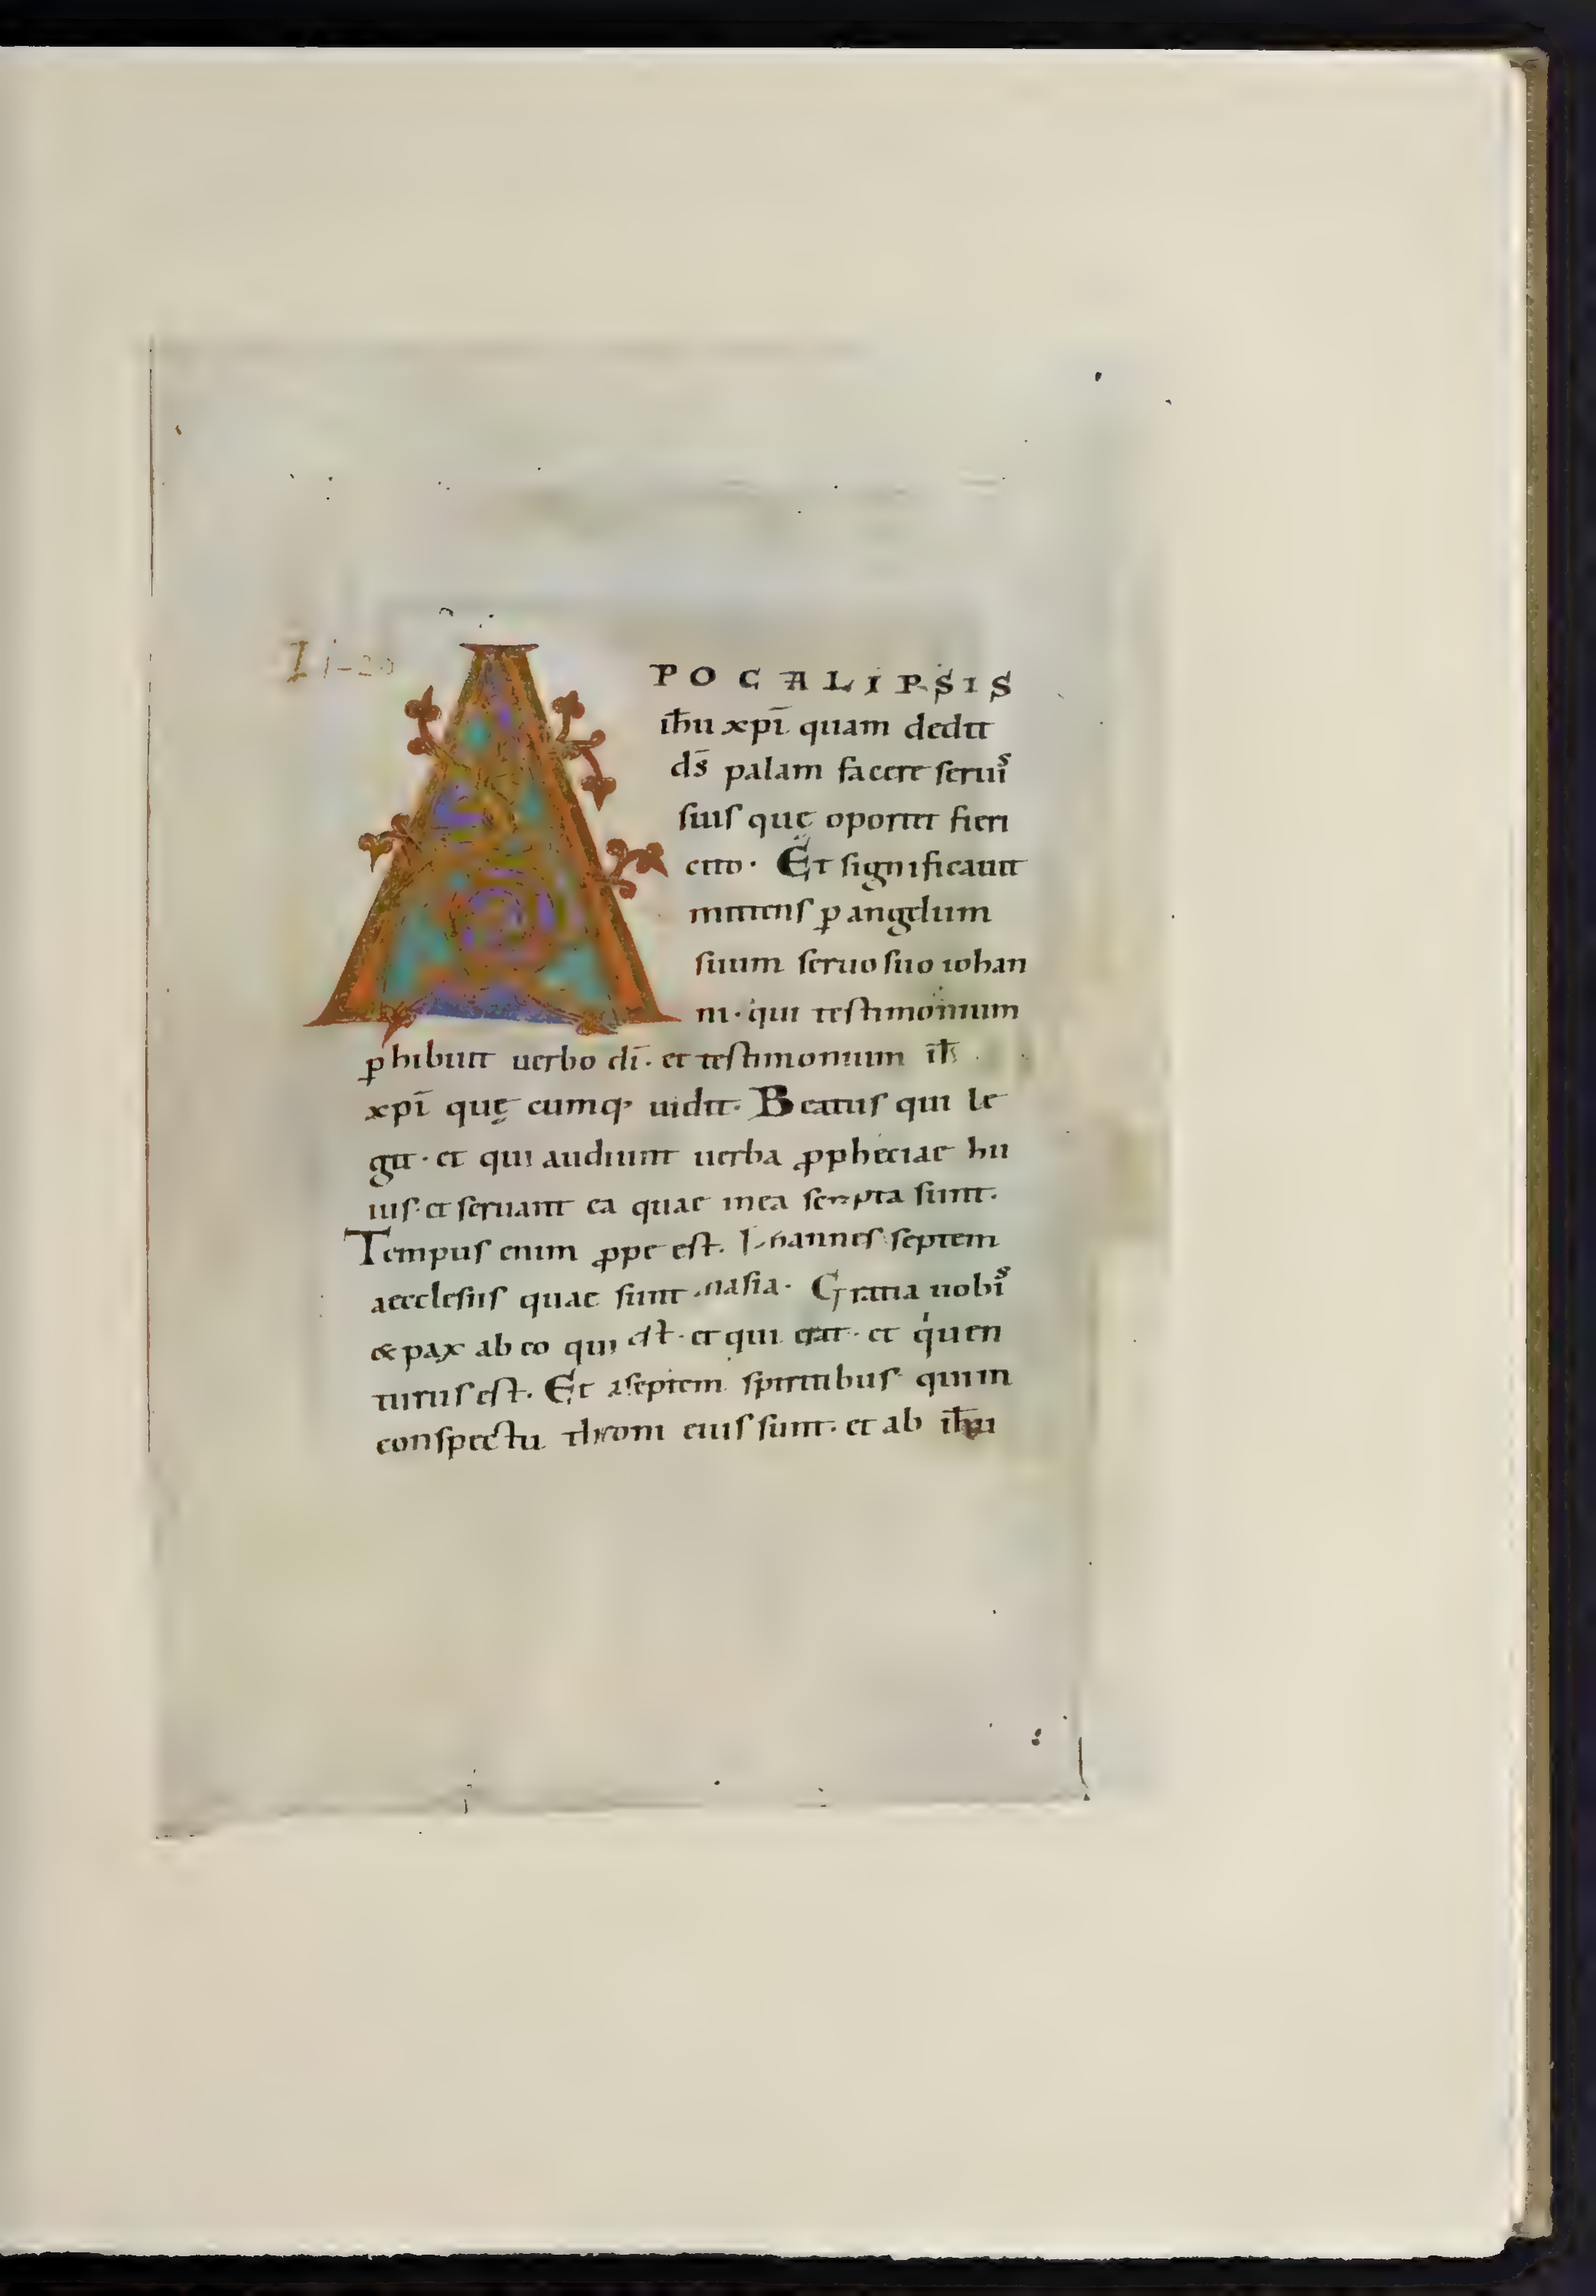 I 1-20
APOCALIPSIS
ih̄u xpī quam dedit
ds̄ palam facere seruis
suis quę oportet fieri
cito· Et significauit
mittens ꝑ angelum
suum seruo suo iohan
ni· qui testimonium
ꝑhibuit uerbo dī· et testimonium ih̄
xpī quę cumq; uidit· Beatus qui le
git· et qui audiunt uerba ꝓpheciae hu
ius· et seruant ea quae in ea scripta sunt·
Tempus enim ꝓpe est. Iohannes septem
aecclesiis quae sunt in asia· Gratia uobis
& pax ab eo qui est· et qui erat· et qͥ uen
turus est. Et a septem spiritibus qui in
conspectu throni eius sunt· et ab ih̄u